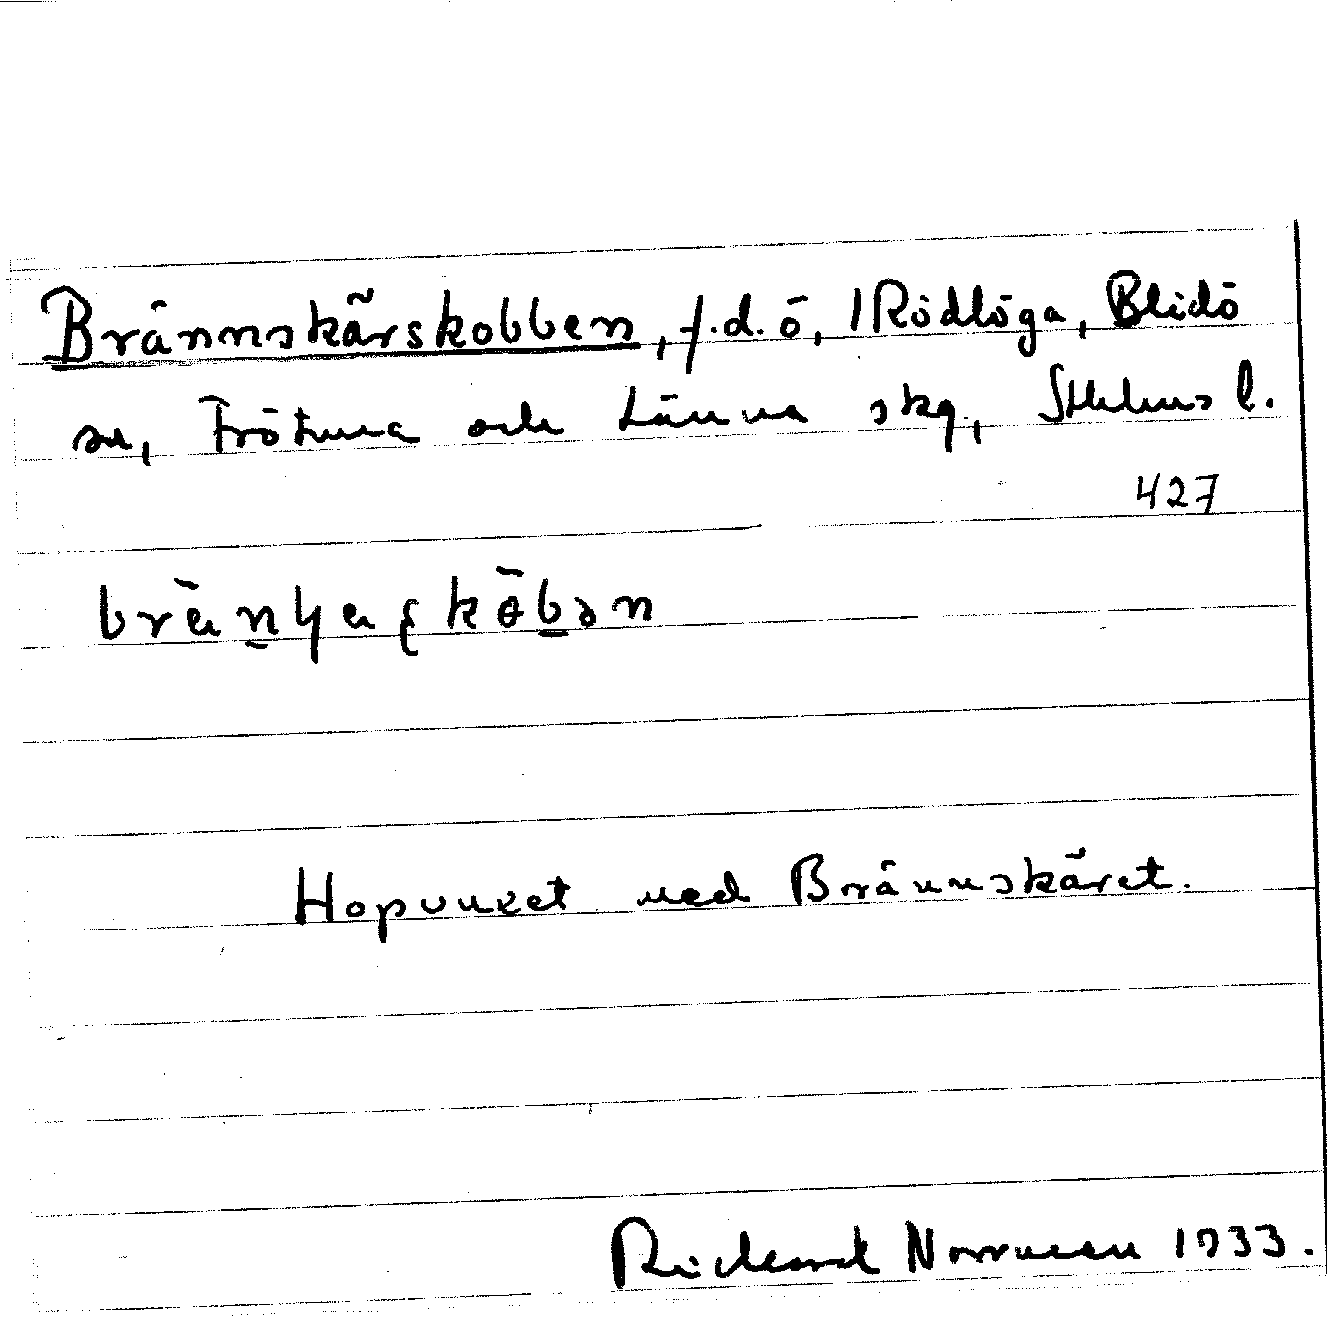 Brännskärskobben, f.d. ö, Rödlöga, Blidö
sn, Frötuna och Länna skg, Sthlms l.
427
Hopvuxet med Brännskäret.
Rickard Norrman 1933.